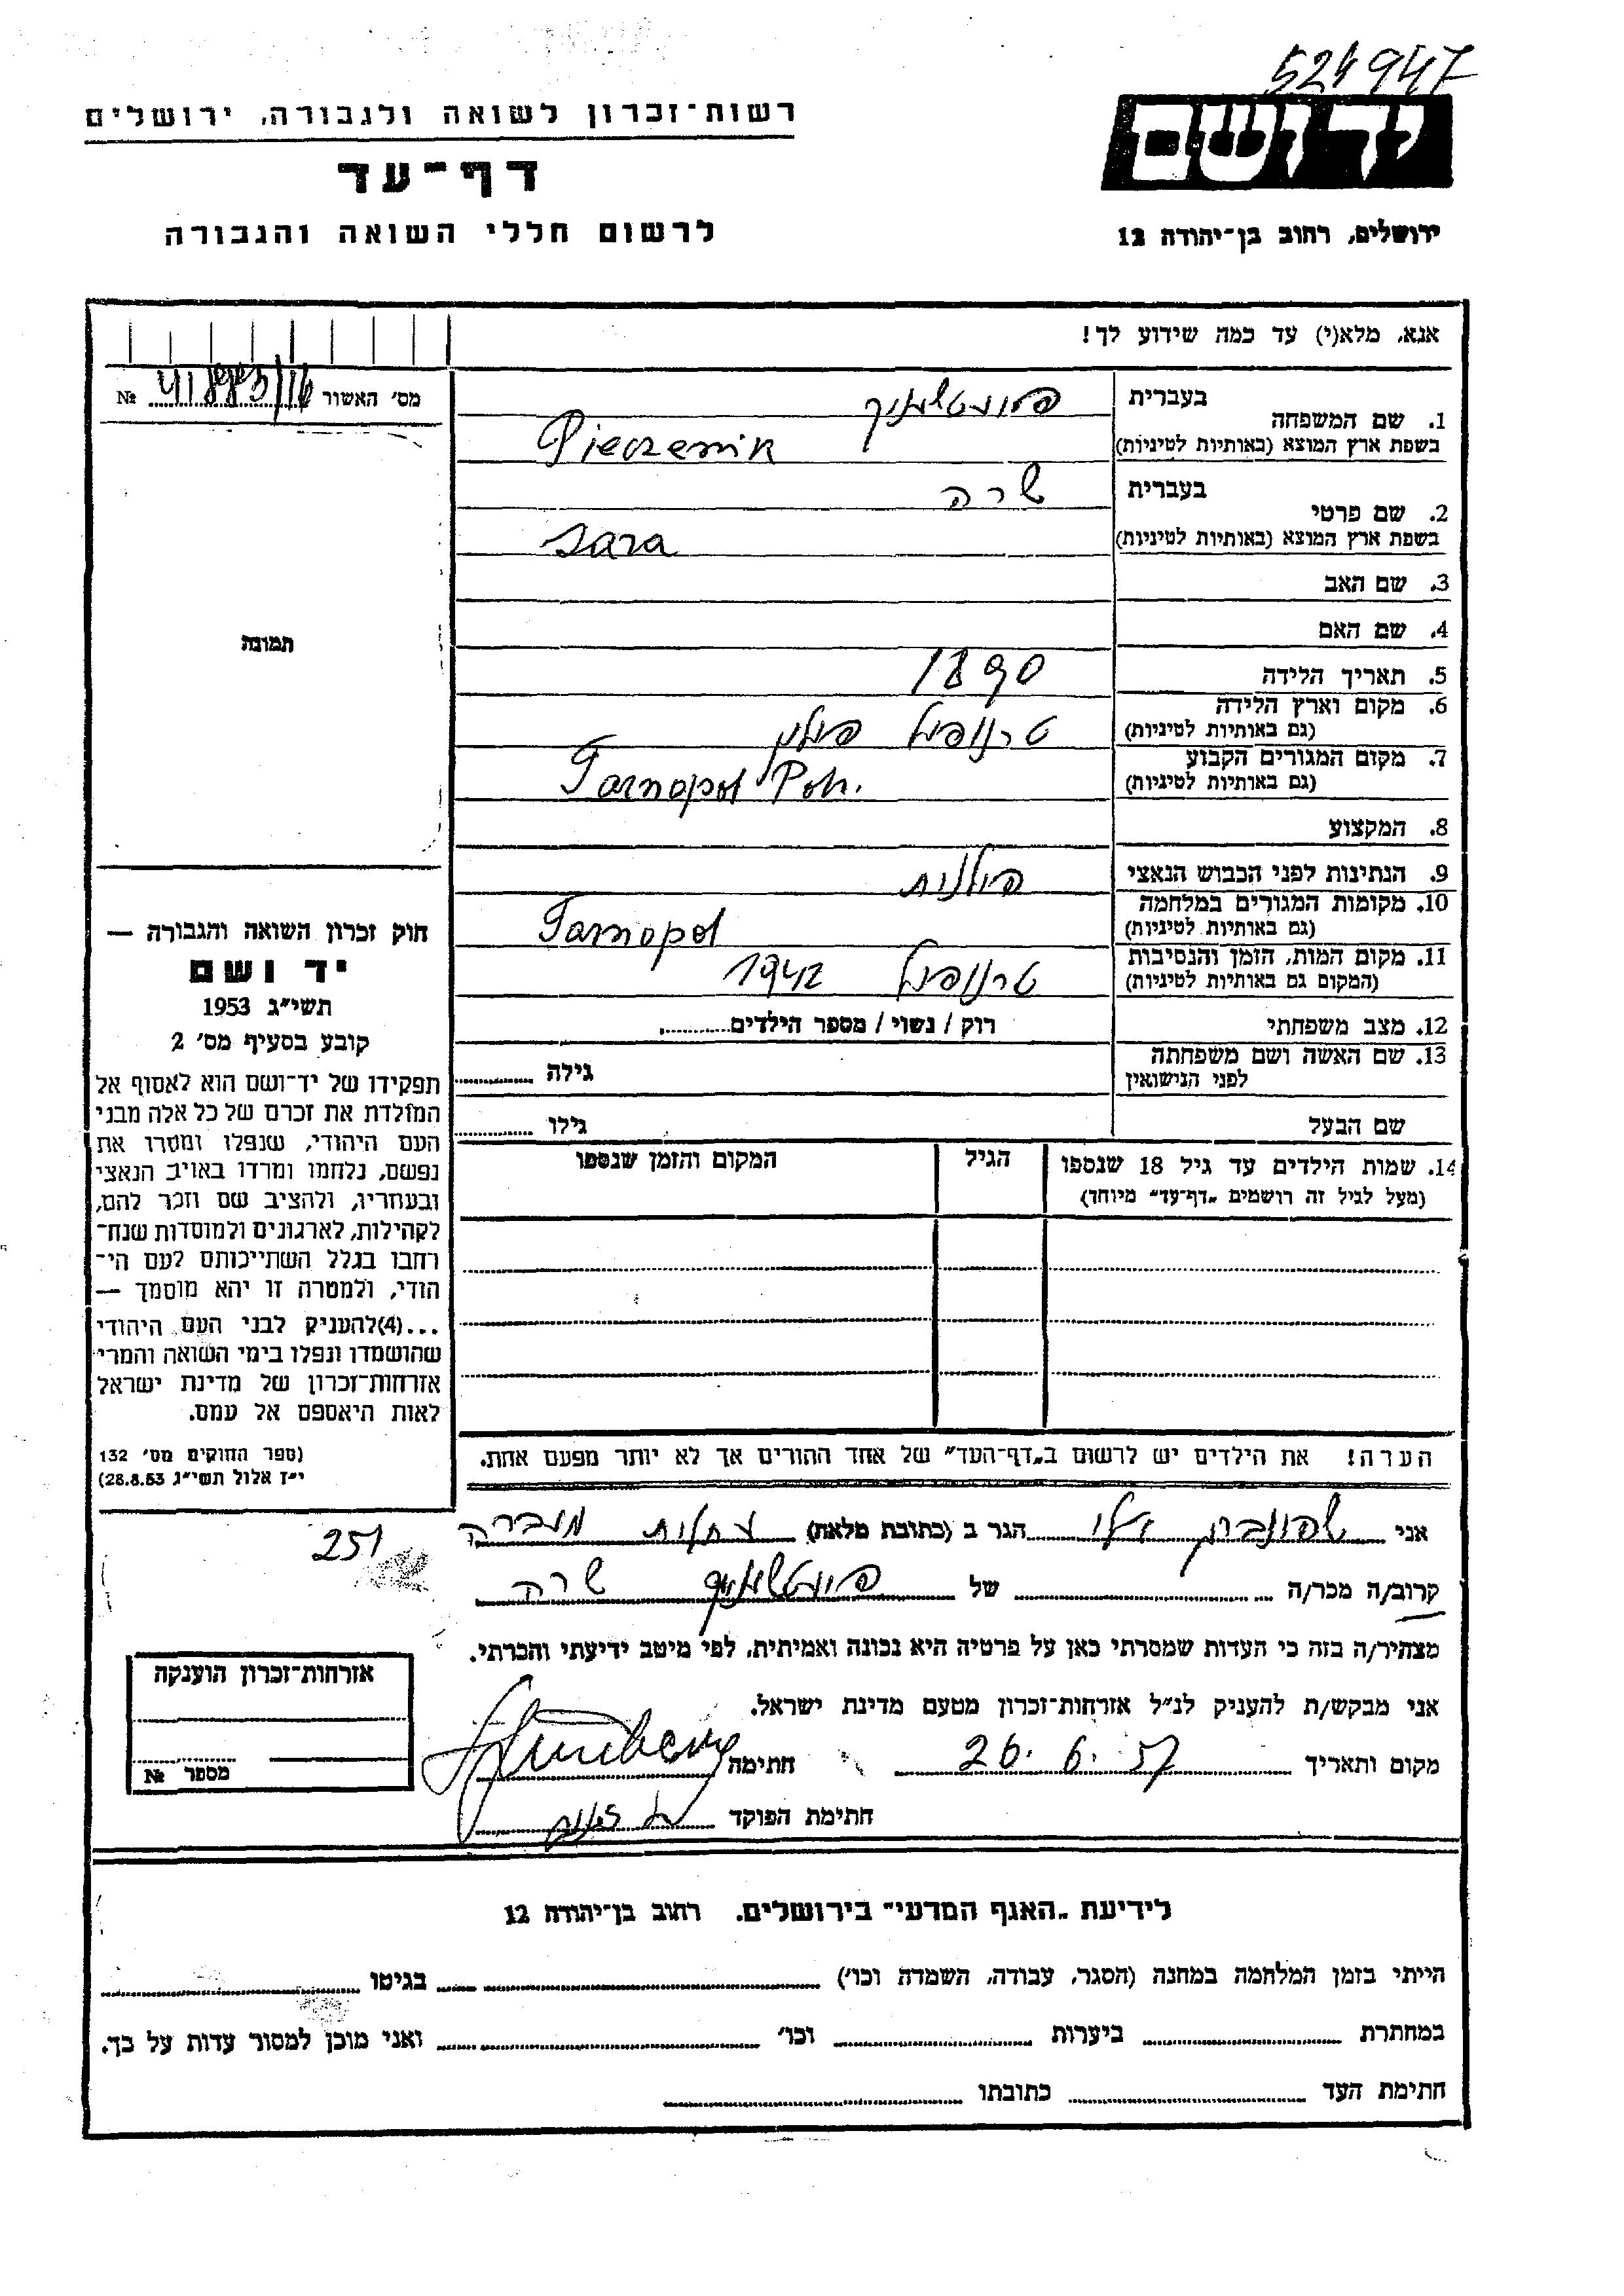 524947
רשות־זכרון לשואה ולגבורה, ירושלים
יד ושם
דף־עד
לרשום חללי השואה והגבורה
ירושלים, רחוב בן־יהודה 12
אנא, מלא(י) עד כמה שידוע לך!
מס׳ האשור 41883/16 №
תמונה
בעברית
1. שם המשפחה
בשפת ארץ המוצא (באותיות לטיניות) Pieczenik
בעברית שרה
2. שם פרטי
בשפת ארץ המוצא (באותיות לטיניות) Sara
3. שם האב
4. שם האם
5. תאריך הלידה 1890
6. מקום וארץ הלידה טרנופול פולין
(גם באותיות לטיניות)
7. מקום המגורים הקבוע Tarnopol Pol.
(גם באותיות לטיניות)
8. המקצוע
9. הנתינות לפני הכבוש הנאצי פולנית
10. מקומות המגורים במלחמה Tarnopol
(גם באותיות לטיניות)
11. מקום המות, הזמן והנסיבות טרנופול 1942
(המקום גם באותיות לטיניות)
12. מצב משפחתי רוק / נשוי / מספר הילדים
13. שם האשה ושם משפחתה גילה
לפני הנישואין
שם הבעל גילו
14. שמות הילדים עד גיל 18 שנספו הגיל המקום והזמן שנספו
(מעל לגיל זה רושמים „דף־עד״ מיוחד)
חוק זכרון השואה והגבורה —
יד ושם
תשי״ג 1953
קובע בסעיף מס׳ 2
תפקידו של יד־ושם הוא לאסוף אל
המולדת את זכרם של כל אלה מבני
העם היהודי, שנפלו ומסרו את
נפשם, נלחמו ומרדו באויב הנאצי
ובעוזריו, ולהציב שם וזכר להם,
לקהילות, לארגונים ולמוסדות שנח־
רחבו בגלל השתייכותם לעם הי־
הודי, ולמטרה זו יהא מוסמך —
...(4)להעניק לבני העם היהודי
שהושמדו ונפלו בימי השואה והמרי
אזרחות־זכרון של מדינת ישראל
לאות היאספם אל עמם.
(ספר החוקים מס׳ 132
י״ז אלול תשי״ג 28.8.53)
הערה! את הילדים יש לרשום ב„דף־העד״ של אחד ההורים אך לא יותר מפעם אחת.
251
אני הגר ב (כתובת מלאה)
קרוב/ה מכר/ה של שרה
מצהיר/ה בזה כי העדות שמסרתי כאן על פרטיה היא נכונה ואמיתית, לפי מיטב ידיעתי והכרתי.
אני מבקש/ת להעניק לנ״ל אזרחות־זכרון מטעם מדינת ישראל.
מקום ותאריך 26. 6. 57 חתימה
חתימת הפוקד
אזרחות־זכרון הוענקה
מספר №
לידיעת „האגף המדעי״ בירושלים. רחוב בן־יהודה 12
הייתי בזמן המלחמה במחנה (הסגר, עבודה, השמדה וכו׳) בגיטו
במחתרת ביערות וכו׳ ואני מוכן למסור עדות על כך.
חתימת העד כתובתו